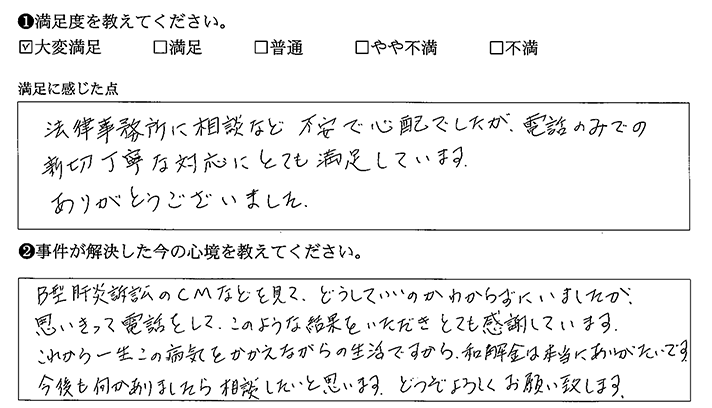 ❶満足度を教えてください。
☑大変満足 □満足 □普通 □やや不満 □不満
満足に感じた点
法律事務所に相談など 不安で心配でしたが、電話のみでの
親切丁寧な対応にとても満足しています。
ありがとうございました。
❷事件が解決した今の心境を教えてください。
B型肝炎訴訟のCMなどを見て、どうしていいのかわからずにいましたが、
思いきって電話をして、このような結果をいただきとても感謝しています。
これから一生この病気をかかえながらの生活ですから、和解金は本当にありがたいです
今後も何かありましたら相談したいと思います。どうぞよろしくお願い致します。